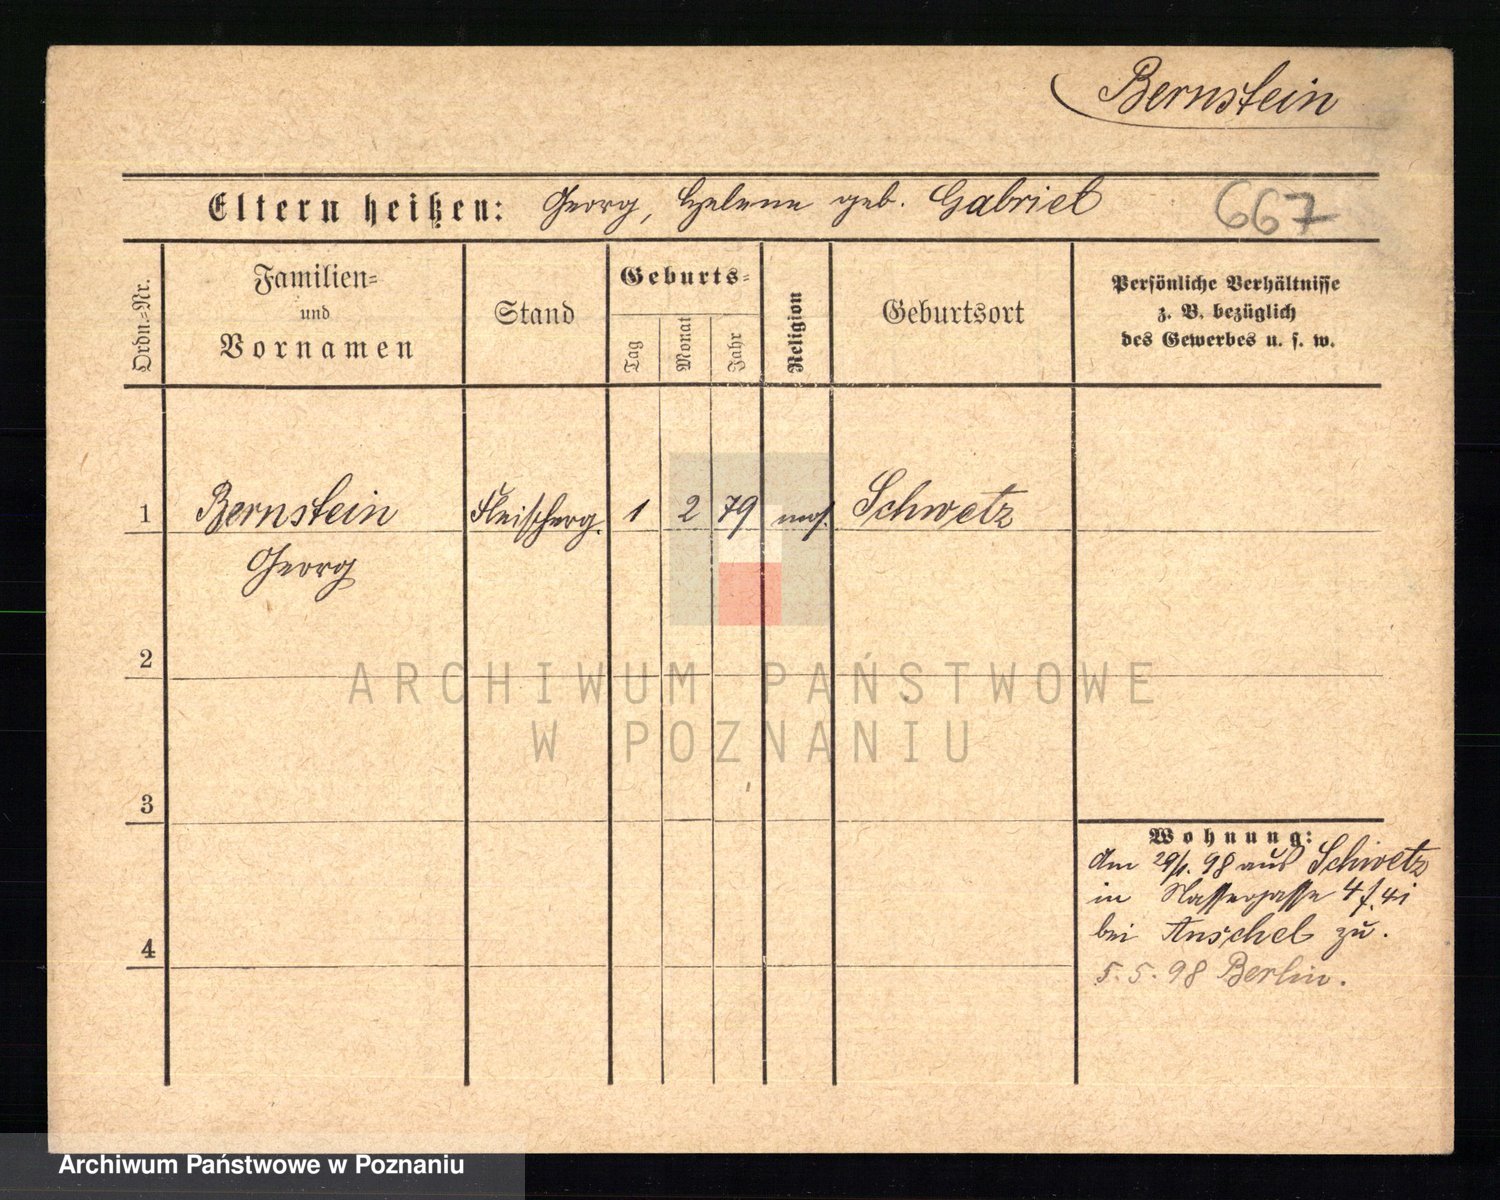 Bernstein
Eltern heißen: Georg, Helene geb. Gabriel 667
Ordn.-Nr.
Familien-
und
Vornamen
Stand
Geburts-
Tag
Monat
Jahr
Religion
Geburtsort
Persönliche Verhältnisse
z. B. bezüglich
des Gewerbes u. s. w.
1 Bernstein Fleischerg. 1 2 79 mos. Schwetz
Georg
2
ARCHIWUM PAŃSTWOWE
W POZNANIU
3
Wohnung:
Am 29/1. 98 aus Schwetz
in Nassegasse 4
bei Anschel zu.
4
5.5.98 Berlin.
Archiwum Państwowe w Poznaniu